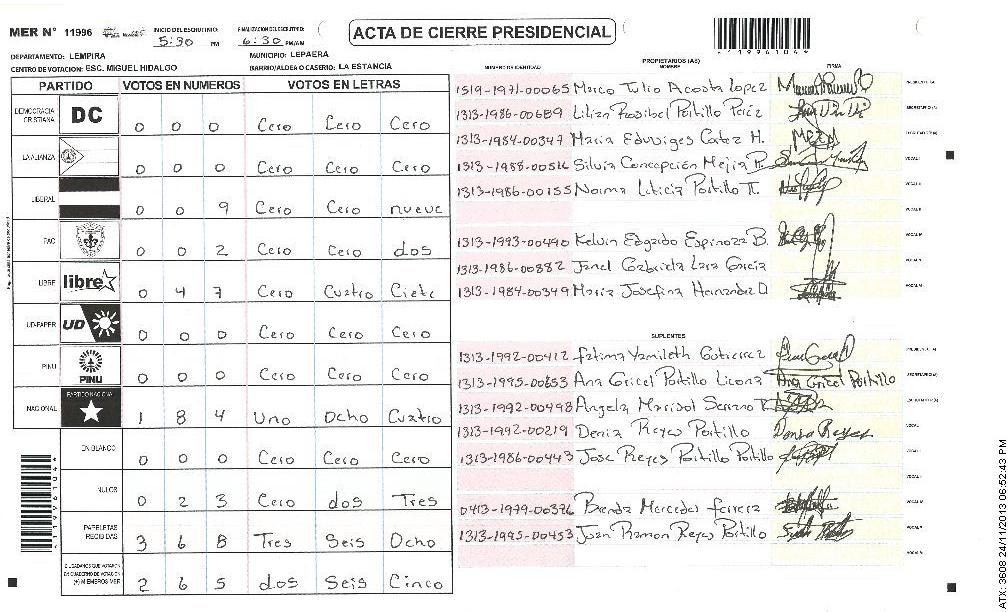 MER N° 11996
INICIO DEL ESCRUTINIO:
5:30 PM
FINALIZACION DEL ESCRUTINIO:
6:30 PM/AM
ACTA DE CIERRE PRESIDENCIAL
11996104
DEPARTAMENTO: LEMPIRA
MUNICIPIO: LEPAERA
CENTRO DE VOTACION: ESC. MIGUEL HIDALGO
BARRIO/ALDEA O CASERIO: LA ESTANCIA
PARTIDO VOTOS EN NUMEROS VOTOS EN LETRAS
DEMOCRACIA CRISTIANA DC 0 0 0 Cero Cero Cero
LA ALIANZA 0 0 0 Cero Cero Cero
LIBERAL 0 0 9 Cero Cero nueve
PAC 0 0 2 Cero Cero dos
LIBRE libre 0 4 7 Cero Cuatro Ciete
UD-FAPER UD 0 0 0 Cero Cero Cero
PINU PINU 0 0 0 Cero Cero Cero
NACIONAL PARTIDO NACIONAL 1 8 4 Uno Ocho Cuatro
EN BLANCO 0 0 0 Cero Cero Cero
NULOS 0 2 3 Cero dos Tres
PAPELETAS RECIBIDAS 3 6 8 Tres Seis Ocho
CIUDADANOS QUE VOTARON EN CUADERNO DE VOTACION (+) MIEMBROS MER 2 6 5 dos Seis Cinco
11996104
PROPIETARIOS (AS)
NUMERO DE IDENTIDAD NOMBRE FIRMA
1519-1971-00065 Marco Tulio Acosta Lopez PRESIDENTE (A)
1313-1986-00689 Lilian Rosibel Portillo Peréz SECRETARIO (A)
1313-1984-00347 Maria Eduviges Catez H. ESCRUTADOR (A)
1313-1988-00516 Silvia Concepción Mejia R. VOCAL I
1313-1986-00155 Norma Leticia Portillo VOCAL II
VOCAL III
1313-1993-00490 Kelvin Edgardo Espinoza B. VOCAL IV
1313-1986-00882 Janel Gabriela Lara Garcia VOCAL V
1313-1984-00349 Maria Josefina Hernandez D VOCAL VI
SUPLENTES
1313-1992-00412 Fatima Yamileth Gutierrez PRESIDENTE (A)
1313-1995-00653 Ana Gricel Portillo Licona Ana Gricel Portillo SECRETARIO (A)
1313-1992-00498 Angela Marisol Serrano ESCRUTADOR (A)
1313-1992-00219 Denia Reyes Portillo Denia Reyes VOCAL I
1313-1986-00443 Jose Reyes Portillo Portillo VOCAL II
VOCAL III
0413-1979-00376 Brenda Mercedes Ferrera VOCAL IV
1313-1995-00453 Juan Ramon Reyes Portillo VOCAL V
VOCAL VI
ATX: 3608 24/11/2013 06:52:43 PM